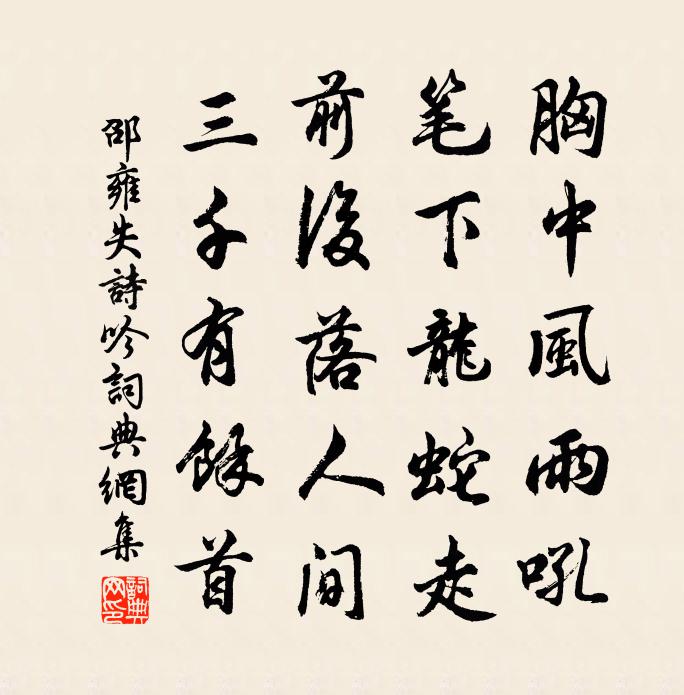 胸中風雨吼
笔下龍蛇走
前後落人间
三千有餘首
邵雍失詩吟詞典網集
詞典網印